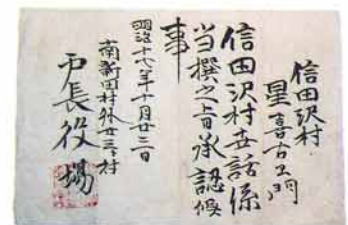 信田沢村
星喜古エ門
信田沢村世話係
当撰之旨承認候
事
明治十七年十月廿三日
南新田村外廿三ヶ村
戸長役場